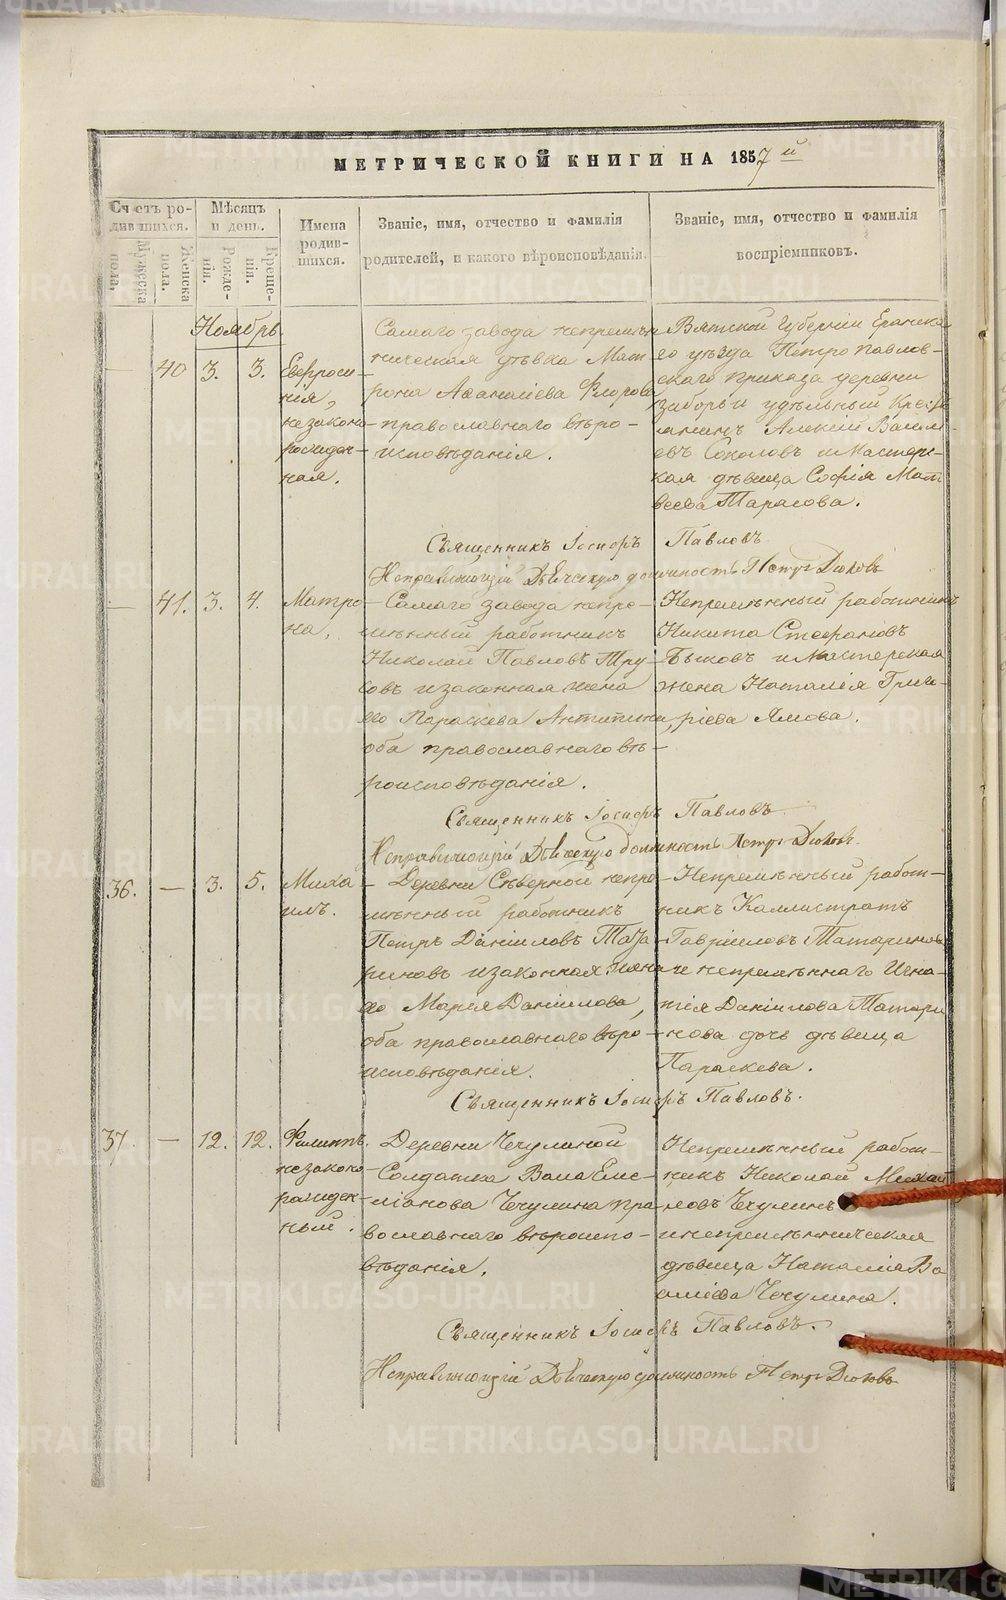 МЕТРИЧЕСКОЙ КНИГИ НА 1857й
Счетъ ро-
дившихся.
Мѣсяцъ
и день.
Имена
родив-
шихся.
Званіе, имя, отчество и фамилія
родителей, и какого вѣроисповѣданія.
Званіе, имя, отчество и фамилія
воспріемниковъ.
Мужеска
пола.
Женска
пола.
Рожде-
нія.
Креще-
нія.
Ноябрь.
— 40 3. 3.
Евфроси-
нія,
незаконо-
рожден-
ная.
Самаго завода непремѣн
ническая дѣвка Мат-
рона Аѳанасіева Флорова
православнаго вѣро-
исповѣданія.
Вятской Губерніи Еранска
го уѣзда Петропавлов-
скаго приказа деревни
Заборья удѣльный Кресть
янинъ Алексій Василь-
евъ Соколовъ и Мастерс-
кая дѣвица Софія Мат
веева Тарасова.
Священникъ Іосифъ Павловъ
Исправляющій Дьяческую должность Петръ Дюковъ
— 41. 3. 4.
Матро-
на,
Самаго завода непре-
мѣнный работникъ
Николай Павловъ Тру-
совъ и законная жена
его Параскева Антипина,
оба православнаго вѣ-
роисповѣданія.
Непремѣнный работникъ
Никита Стефановъ
Быковъ и Мастерская
жена Наталія Григо-
ріева Ямова.
Священникъ Іосифъ Павловъ
Исправляющій Дьяческую должность Петръ Дюковъ
36. — 3. 5.
Миха-
илъ.
Деревни Сѣверной непре-
мѣнный работникъ
Петръ Даніиловъ Тата
риновъ и законная жена
его Марія Даніилова,
оба православнаго вѣро-
исповѣданія.
Непремѣнный работ-
никъ Каллистратъ
Гавріиловъ Татариновъ
и непремѣннаго Игна-
тія Даніилова Татари
нова дочь дѣвица
Параскева.
Священникъ Іосифъ Павловъ.
37. — 12. 12.
Филиппъ.
незаконо-
рожден-
ный.
Деревни Чечулиной
Солдатка Васса Еме-
ліанова Чечулина пра
вославнаго вѣроиспо-
вѣданія.
Непремѣнный работ-
никъ Николай Михай
ловъ Чечулинъ
и непремѣнническая
дѣвица Наталія Ва
силіева Чечулина.
Священникъ Іосифъ Павловъ.
Исправляющій Дьяческую должность Петръ Дюковъ
METRIKI.GASO-URAL.RU